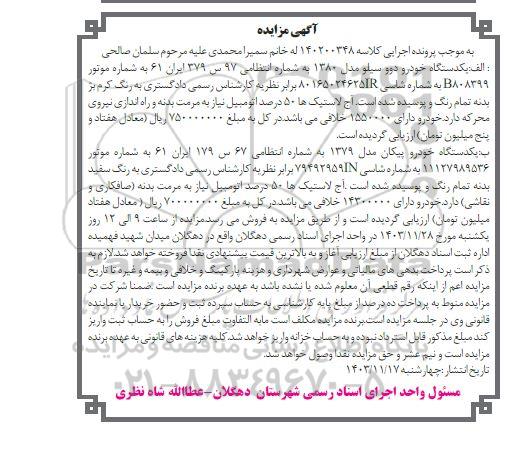 آگهی مزایده
به موجب پرونده اجرایی کلاسه ۱۴۰۲۰۰۳۴۸ له خانم سمیرا محمدی علیه مرحوم سلمان صالحی
: الف:یکدستگاه خودرو دوو سیلو مدل ۱۳۸۰ به شماره انتظامی ۹۷ س ۳۷۹ ایران ۶۱ به شماره موتور
B۸۰۸۳۹۹ به شماره شاسی ۸۰۱۶۵۰۲۴۶۲۵IR برابر نظریه کارشناس رسمی دادگستری به رنگ کرم بژ
بدنه تمام رنگ و پوسیده شده است. آج لاستیک ها ۵۰ درصد اتومبیل نیاز به مرمت بدنه و راه اندازی نیروی
محرکه دارد.خودرو دارای ۱۵۵۰۰۰۰ خلافی می باشد.در کل به مبلغ ۷۵۰۰۰۰۰۰۰ ریال (معادل هفتاد و
پنج میلیون تومان) ارزیابی گردیده است.
ب:یکدستگاه خودرو پیکان مدل ۱۳۷۹ به شماره انتظامی ۶۷ س ۱۷۹ ایران ۶۱ به شماره موتور
۱۱۱۲۷۹۸۹۵۳۶ به شماره شاسی ۷۹۴۹۲۹۵۹IN برابر نظریه کارشناس رسمی دادگستری به رنگ سفید
بدنه تمام رنگ و پوسیده شده است .آج لاستیک ها ۵۰ درصد اتومبیل نیاز به مرمت بدنه (صافکاری و
نقاشی) دارد.خودرو دارای ۱۴۳۰۰۰۰۰ خلافی می باشد.در کل به مبلغ ۷۰۰۰۰۰۰۰۰ ریال ( معادل هفتاد
میلیون تومان) ارزیابی گردیده است و از طریق مزایده به فروش می رسد.مزایده از ساعت ۹ الی ۱۲ روز
یکشنبه مورخ ۱۴۰۳/۱۱/۲۸ در واحد اجرای اسناد رسمی دهگلان واقع در دهگلان میدان شهید فهمیده
اداره ثبت اسناد دهگلان از مبلغ ارزیابی آغاز و به بالاترین قیمت پیشنهادی نقدا فروخته خواهد شد.لازم به
ذکر است پرداخت بدهی های مالیاتی و عوارض شهرداری و هزینه پارکینگ و خلافی و بیمه و غیره تا تاریخ
مزایده اعم از اینکه رقم قطعی آن معلوم شده یا نشده باشد به عهده برنده مزایده است .ضمنا شرکت در
مزایده منوط به پرداخت ده درصد از مبلغ پایه کارشناسی به حساب سپرده ثبت و حضور خریدار یا نماینده
قانونی وی در جلسه مزایده است.برنده مزایده مکلف است مابه التفاوت مبلغ فروش را به حساب ثبت واریز
کند مبلغ مذکور قابل استرداد نبوده و به حساب خزانه واریز خواهد شد.کلیه هزینه های قانونی به عهده برنده
مزایده است و نیم عشر و حق مزایده نقدا وصول خواهد شد.
تاریخ انتشار :چهارشنبه ۱۴۰۳/۱۱/۱۷
مسئول واحد اجرای اسناد رسمی شهرستان دهگلان-عطاالله شاه نظری
۰۲۱-۸۸۳۴۹۶۷۰-۵